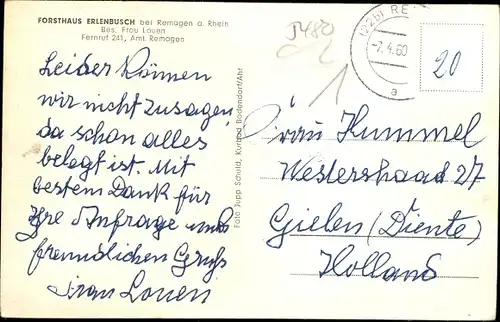 FORSTHAUS ERLENBUSCH bei Remagen a. Rhein
Bes. Frau Louen
Fernruf 241, Amt Remagen
Leider können
wir nicht zusagen
da schon alles
belegt ist. Mit
bestem Dank für
Ihre Anfrage und
freundlichen Gruß
Frau Louen
Foto Jupp Schuld, Kurbad Bodendorf/Ahr
5480
(22b) RE
-7.4.60
a
20
Frau Kummel
Westershaad 27
Gielen (Diente)
Holland